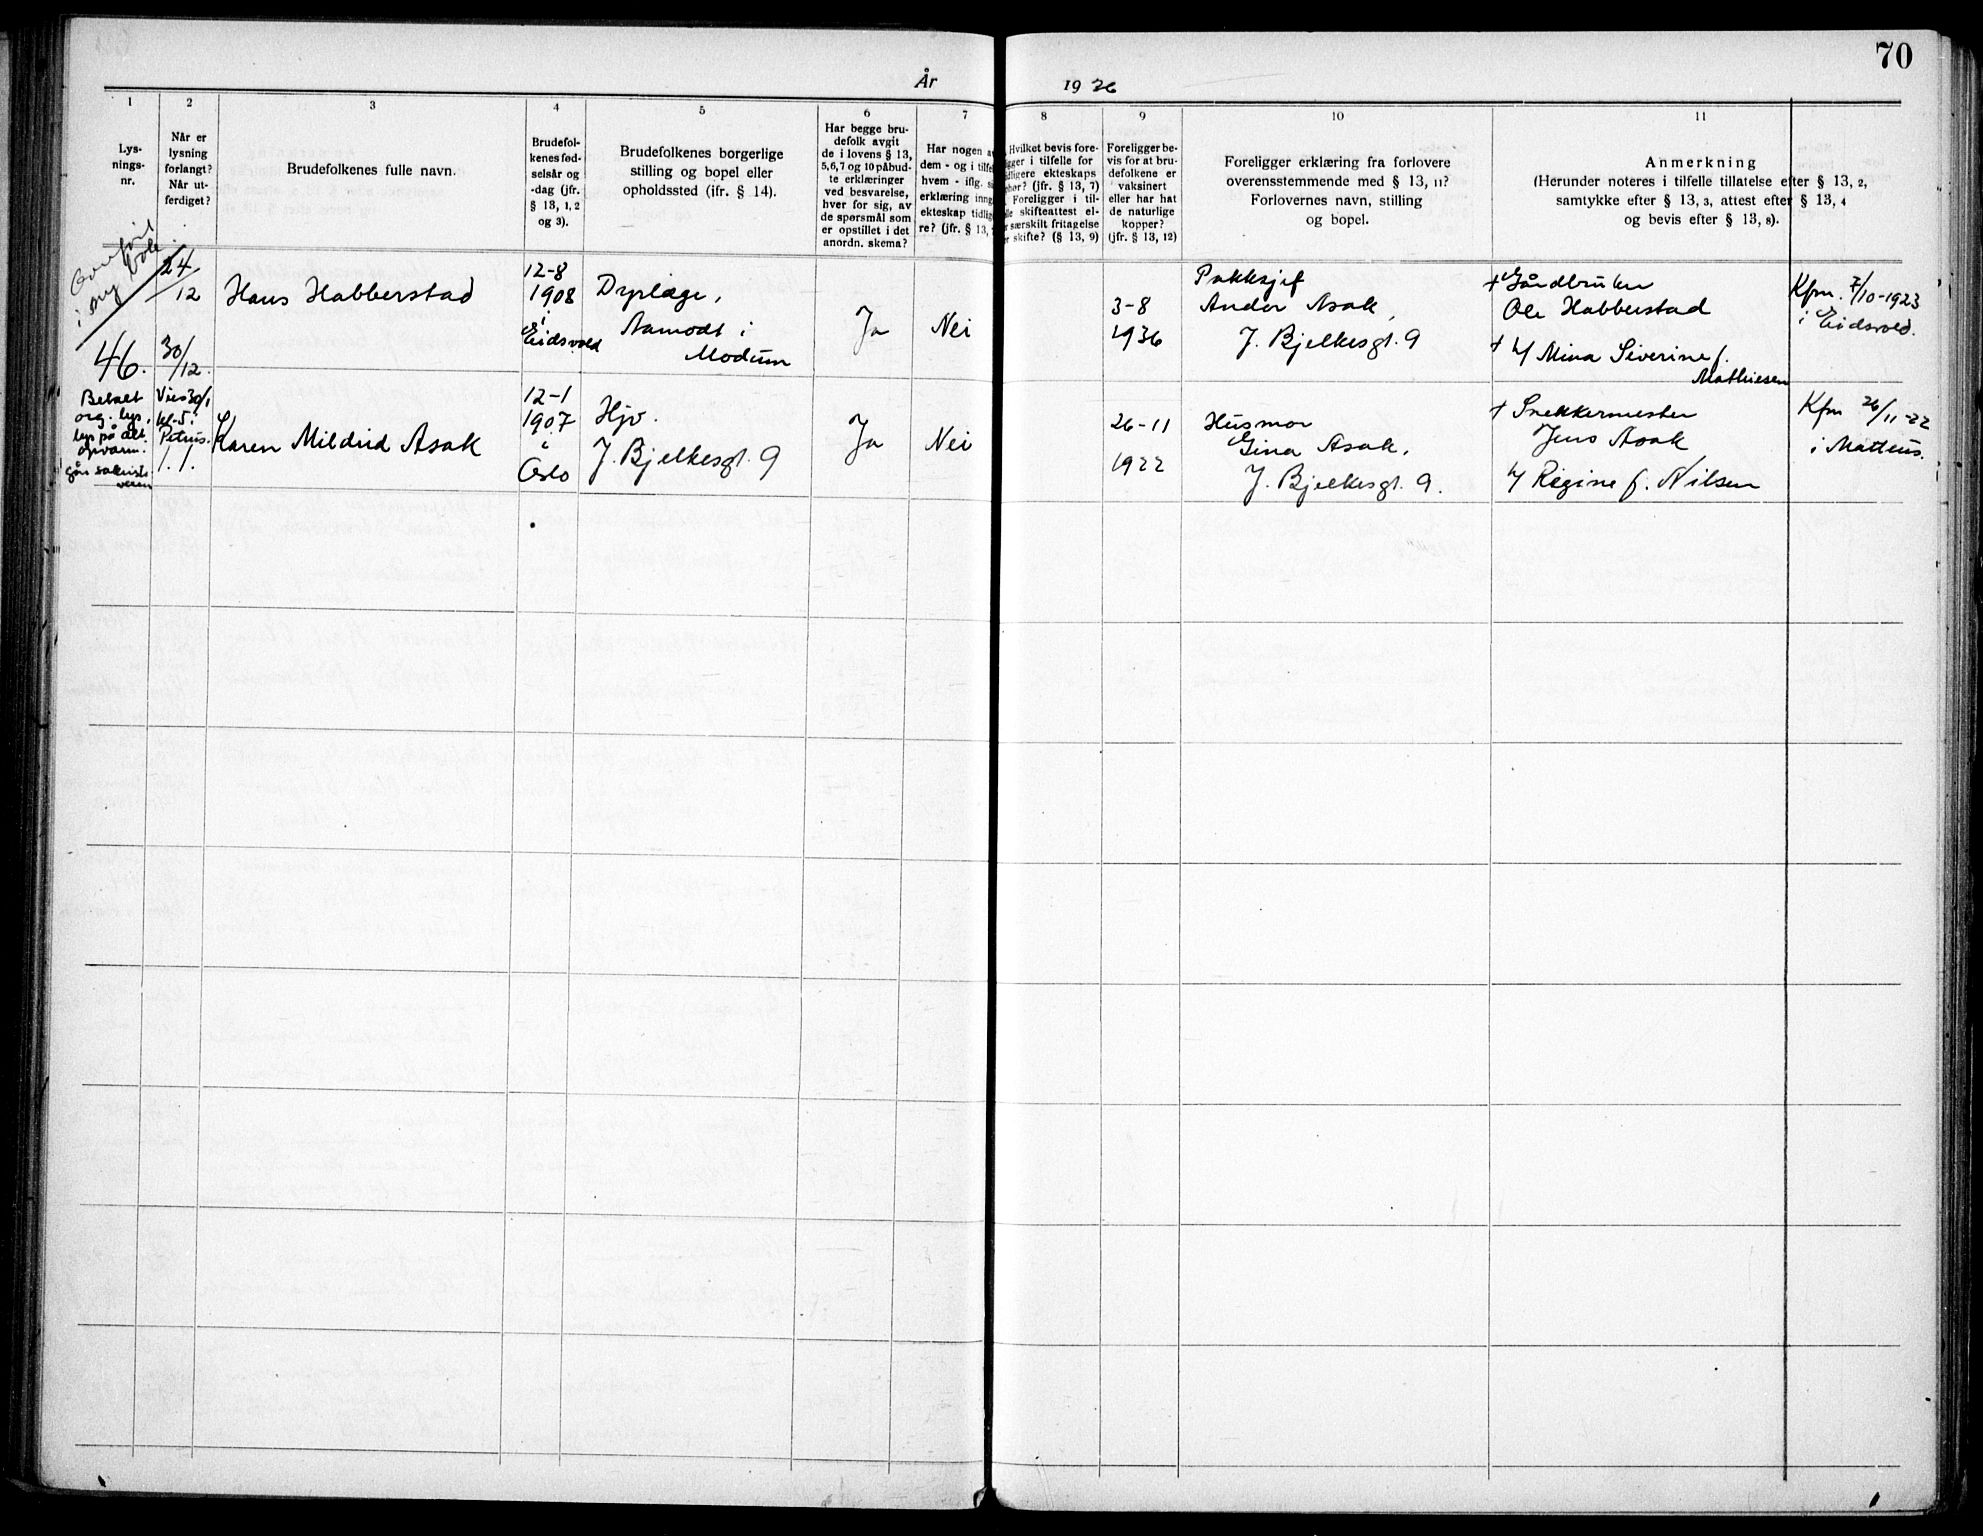 70
År 1936
1
2
3
4
5
6
7
8
9
10
11
Lys-
nings-
nr.
Når er
lysning
forlangt?
Når ut-
ferdiget?
Brudefolkenes fulle navn.
Brudefol-
kenes fød-
selsår og
-dag (jfr.
§ 13, 1, 2
og 3).
Brudefolkenes borgerlige
stilling og bopel eller
opholdssted (ifr. § 14).
Har begge bru-
defolk avgit
de i lovens § 13,
5, 6, 7 og 10 påbud-
te erklæringer
ved besvarelse,
hver for sig, av
de spørsmål som
er opstillet i det
anordn. skema?
Har nogen a
dem - og i tilfe
hvem - iflg. s
erklæring inng
ekteskap tidlig
re? (jfr. § 13,
Hvilket bevis fore-
gger i tilfelle for
dligere ekteskaps
phør? (jfr. § 13, 7)
Foreligger i til-
lle skifteattest el-
r særskilt fritagelse
r skifte? (§ 13, 9)
Foreligger be-
vis for at bru-
defolkene er
vaksinert
eller har hat
de naturlige
kopper?
(jfr. § 13, 12)
Foreligger erklæring fra forlovere
overensstemmende med § 13, 11?
Forlovernes navn, stilling
og bopel.
Anmerkning
(Herunder noteres i tilfelle tillatelse efter § 13, 2,
samtykke efter § 13, 3, attest efter § 13, 4
og bevis efter § 13, 8).
i org bok
46.
24/12
30/12.
Hans Habberstad
12-8
1908
i
Eidsvold
Dyrlæge,
Aamodt i
Modum
Ja
Nei
3-8
1936
Pakksjef
Ander Asak,
J. Bjelkesgt. 9
+ Gårdbruker
Ole Habberstad
+ h/ Mina Siverine f.
Mathiesen
Kfm. 7/10-1923
i Eidsvold.
Betalt
org. lys,
lys på alt.
opvarm.
Vies 30/1
kl. 5 i
Petrus.
1.1.
Karen Mildrid Asak
12-1
1907
i
Oslo
Hjv.
J. Bjelkesgt. 9
Ja
Nei
26-11
1922
Husmor
Gina Asak,
J. Bjelkesgt. 9.
+ Snekkermester
Jens Asak
h/ Regine f. Nilsen
Kfm 26/11-22
i Matteus.